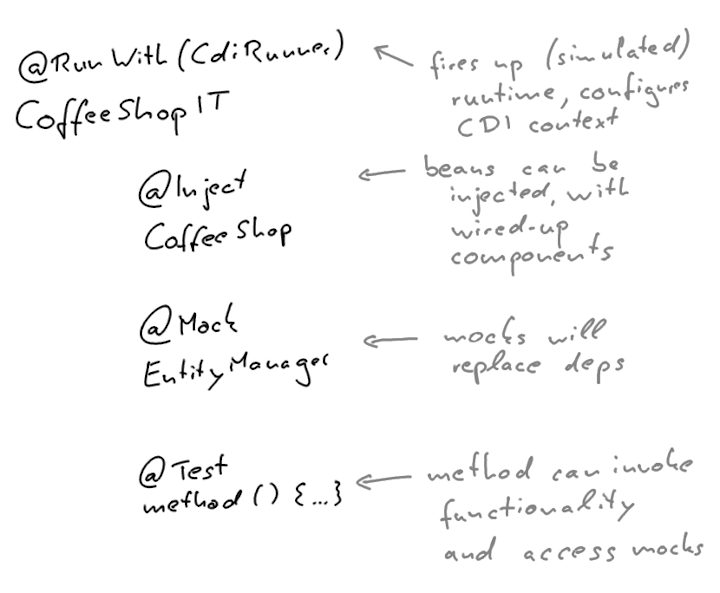 @RunWith(CdiRunner)
CoffeeShopIT
fires up (simulated)
runtime, configures
CDI context
@Inject
CoffeeShop
beans can be
injected, with
wired-up
components
@Mock
EntityManager
mocks will
replace deps
@Test
method() {...}
method can invoke
functionality
and access mocks